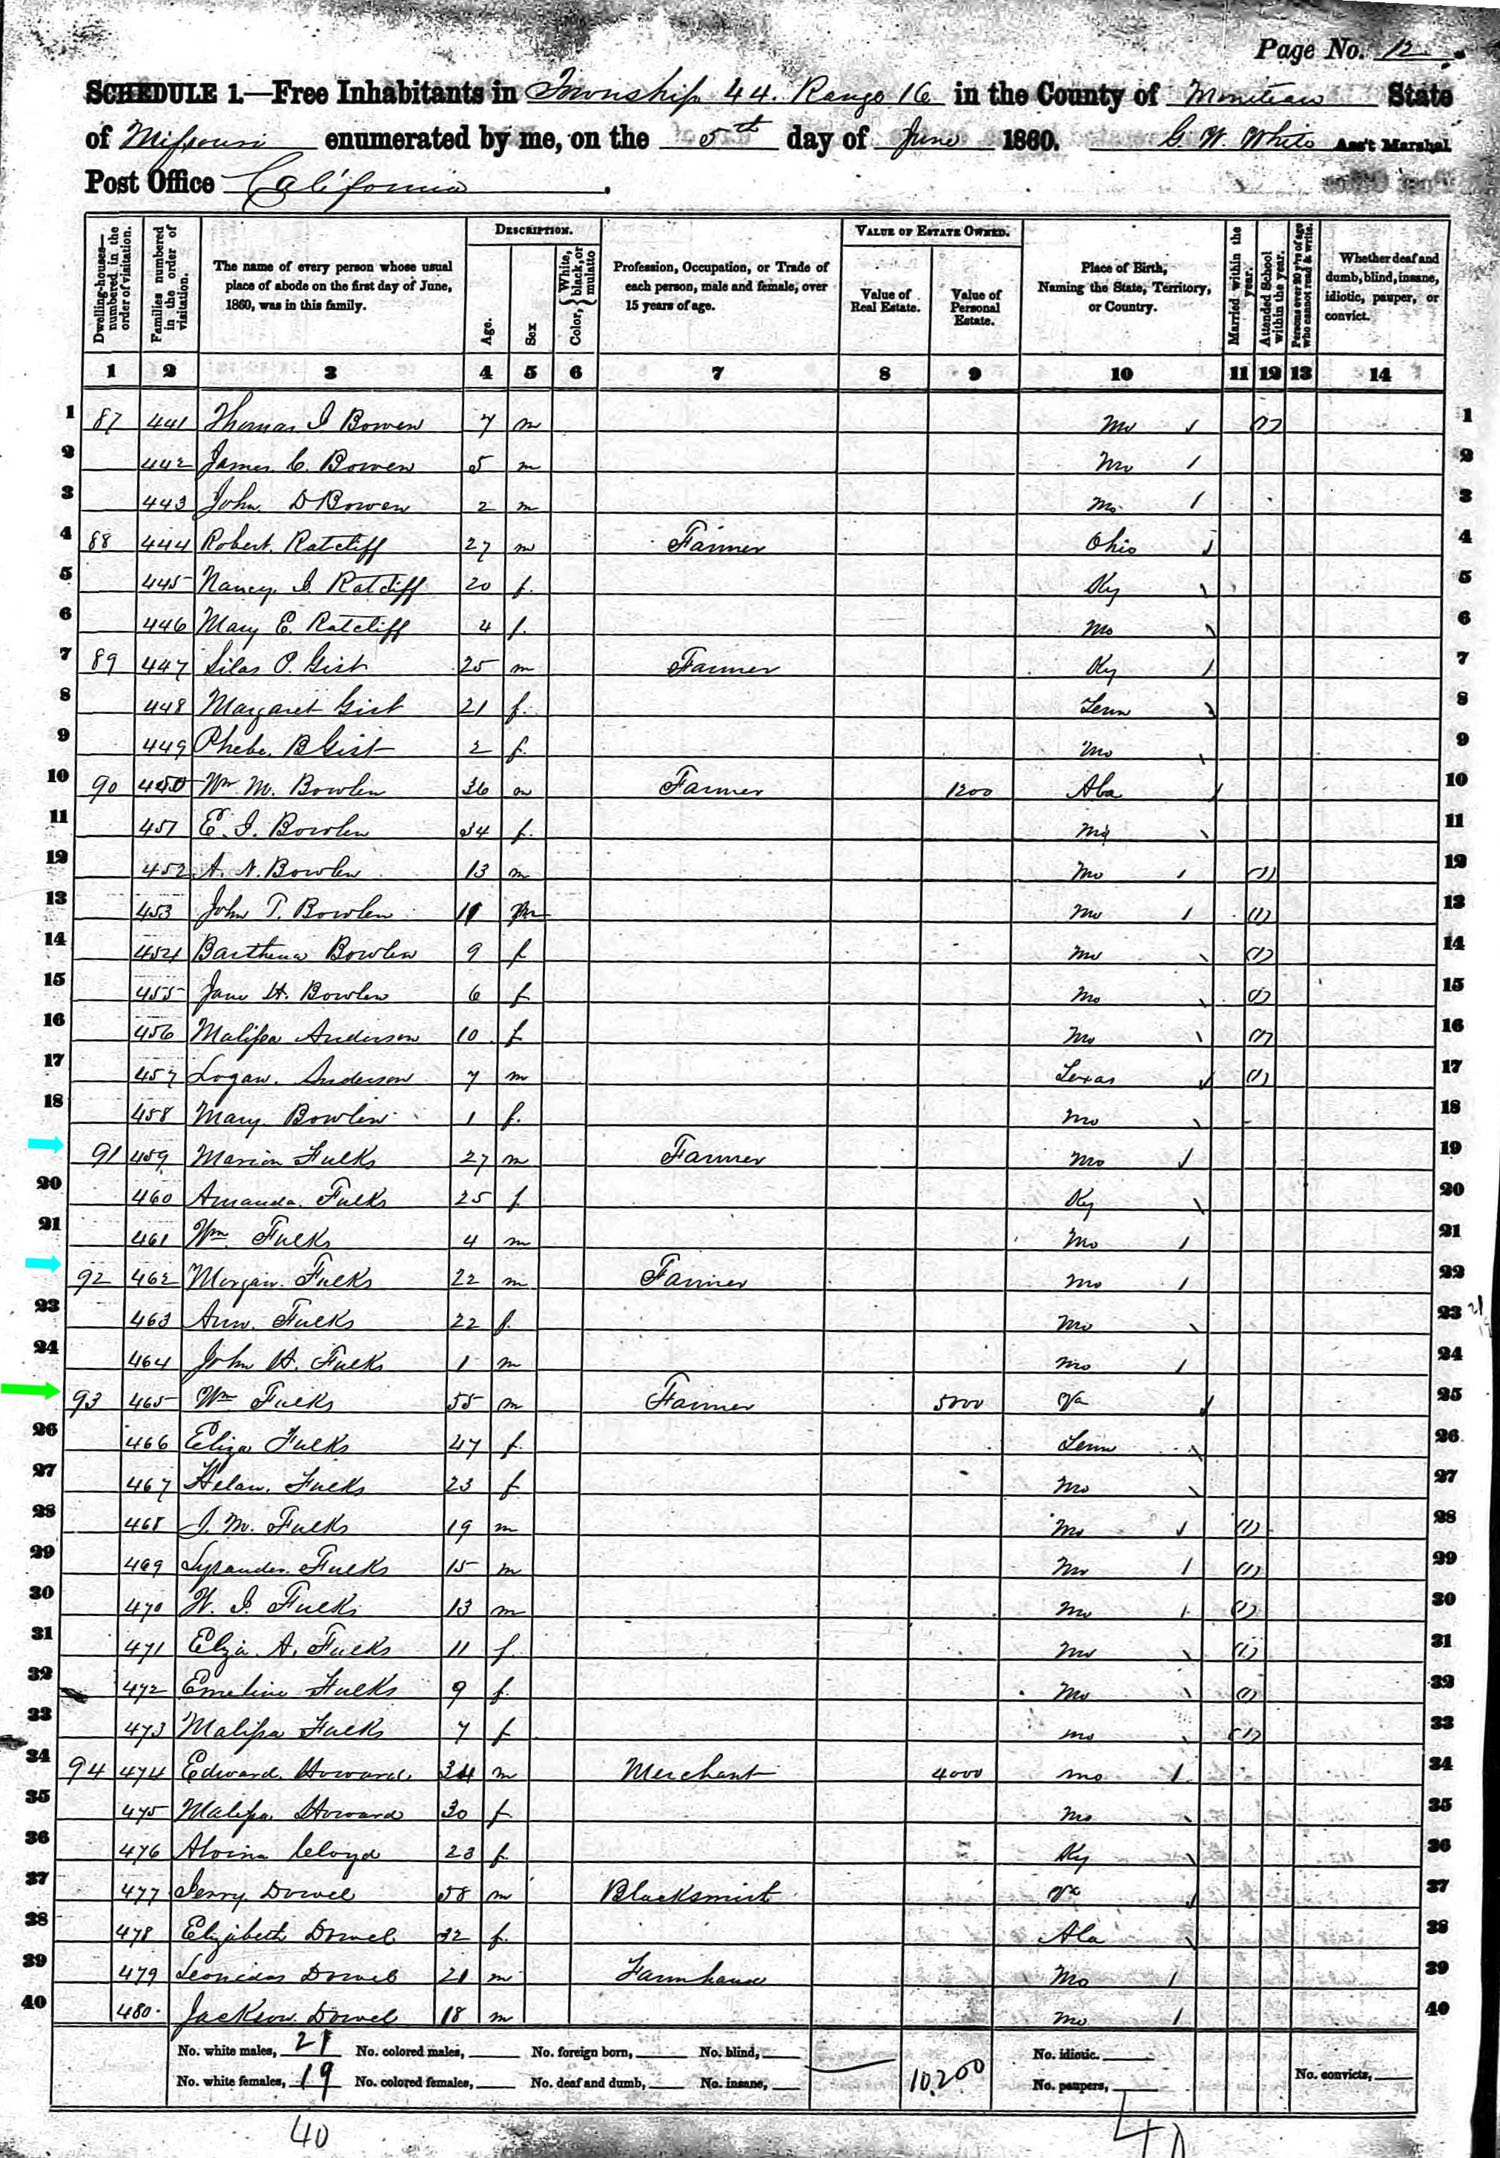 Page No. 12
SCHEDULE 1.—Free Inhabitants in Township 44. Range 16 in the County of Moniteau State
of Missouri enumerated by me, on the 5th day of June 1860. G. W. White Ass't Marshal
Post Office California.
Dwelling-houses—numbered in the order of visitation.
Families numbered in the order of visitation.
The name of every person whose usual place of abode on the first day of June, 1860, was in this family.
DESCRIPTION.
Age.
Sex
Color, White, black, or mulatto
Profession, Occupation, or Trade of each person, male and female, over 15 years of age.
VALUE OF ESTATE OWNED.
Value of Real Estate.
Value of Personal Estate.
Place of Birth, Naming the State, Territory, or Country.
Married within the year.
Attended School within the year.
Persons over 20 y'rs of age who cannot read & write.
Whether deaf and dumb, blind, insane, idiotic, pauper, or convict.
1 2 3 4 5 6 7 8 9 10 11 12 13 14
1 87 441 Thomas J Bowen 7 m Mo / (1) 1
2 442 James C. Bowen 5 m Mo / 2
3 443 John D Bowen 2 m Mo / 3
4 88 444 Robert Ratcliff 27 m Farmer Ohio 4
5 445 Nancy J. Ratcliff 20 f. Ky 5
6 446 Mary E. Ratcliff 4 f. Mo 6
7 89 447 Silas P. Gist 25 m Farmer Ky / 7
8 448 Margaret Gist 21 f. Tenn 8
9 449 Phebe. B Gist 2 f. Mo 9
10 90 450 Wm M. Bowlen 36 m Farmer 1200 Ala / 10
11 451 E. J. Bowlen 34 f. 11
12 452 A. N. Bowlen 13 m Mo / (1) 12
13 453 John T. Bowlen 11 m Mo / (1) 13
14 454 Barthena Bowlen 9 f Mo (1) 14
15 455 Jane H. Bowlen 6 f Mo (1) 15
16 456 Malissa Anderson 10 f Mo (1) 16
17 457 Logan. Anderson 7 m Texas (1) 17
18 458 Mary Bowlen 1 f. Mo 18
19 91 459 Marion Fulks 27 m Farmer Mo 19
20 460 Amanda. Fulks 25 f. Ky 20
21 461 Wm. Fulks 4 m Mo / 21
22 92 462 Morgan. Fulks 22 m Farmer Mo / 22
23 463 Ann. Fulks 22 f. Mo 23
24 464 John H. Fulks 1 m Mo / 24
25 93 465 Wm Fulks 55 m Farmer 5000 Va 25
26 466 Eliza Fulks 47 f. Tenn 26
27 467 Helan. Fulks 23 f Mo 27
28 468 J. M. Fulks 19 m Mo (1) 28
29 469 Lysander. Fulks 15 m Mo / (1) 29
30 470 W. J. Fulks 13 m Mo / (1) 30
31 471 Eliza. A. Fulks 11 f. Mo (1) 31
32 472 Emeline Fulks 9 f. Mo (1) 32
33 473 Malissa Fulks 7 f Mo (1) 33
34 94 474 Edward. Howard. 34 m Merchant 4000 Mo / 34
35 475 Malissa. Howard 30 f Mo 35
36 476 Alvina Cloyd 23 f. Ky 36
37 477 Dowel 58 m Blacksmith Va 37
38 478 Elizabeth Dowel 32 f. Ala 38
39 479 Leonidas Dowel 21 m Mo / 39
40 480. Jackson. Dowel 18 m Mo / 40
No. white males, 21 No. colored males, No. foreign born, No. blind, No. idiotic.
No. white females, 19 No. colored females, No. deaf and dumb, No. insane, 10,200 No. paupers, No. convicts,
40 40